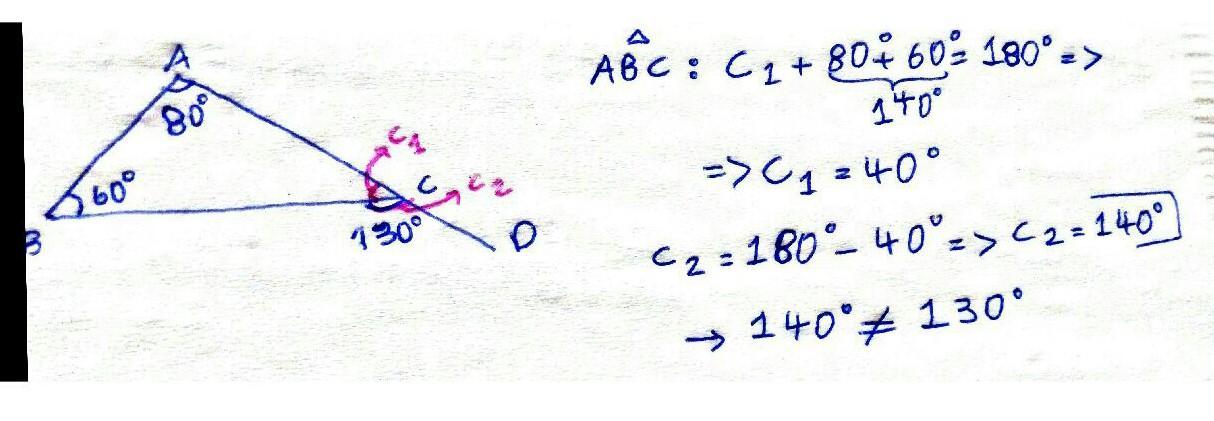 A
80°
60°
B
C₁
C
C₂
130°
D
AB̂C : C₁ + 80° + 60° = 180° =>
140°
=> C₁ = 40°
C₂ = 180° - 40° => C₂ = 140°
→ 140° ≠ 130°